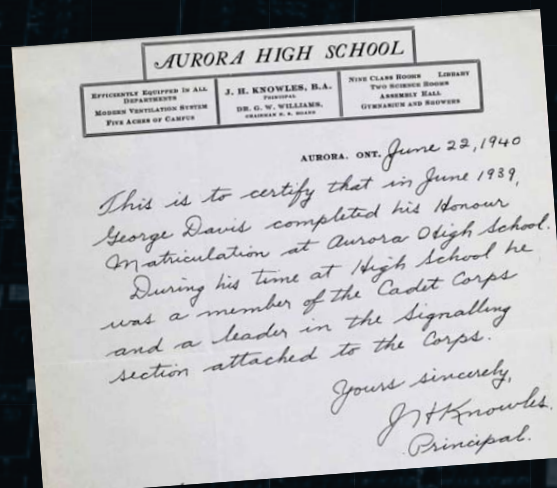 AURORA HIGH SCHOOL
EFFICIENTLY EQUIPPED IN ALL
DEPARTMENTS
MODERN VENTILATION SYSTEM
FIVE ACRES OF CAMPUS
J. H. KNOWLES, B.A.
PRINCIPAL
DR. G. W. WILLIAMS,
CHAIRMAN H. S. BOARD
NINE CLASS ROOMS LIBRARY
TWO SCIENCE ROOMS
ASSEMBLY HALL
GYMNASIUM AND SHOWERS
AURORA, ONT. June 22, 1940
This is to certify that in June 1939,
George Davis completed his Honour
Matriculation at Aurora High School.
During his time at High School he
was a member of the Cadet Corps
and a leader in the Signalling
section attached to the Corps.
Yours sincerely,
J H Knowles.
Principal.